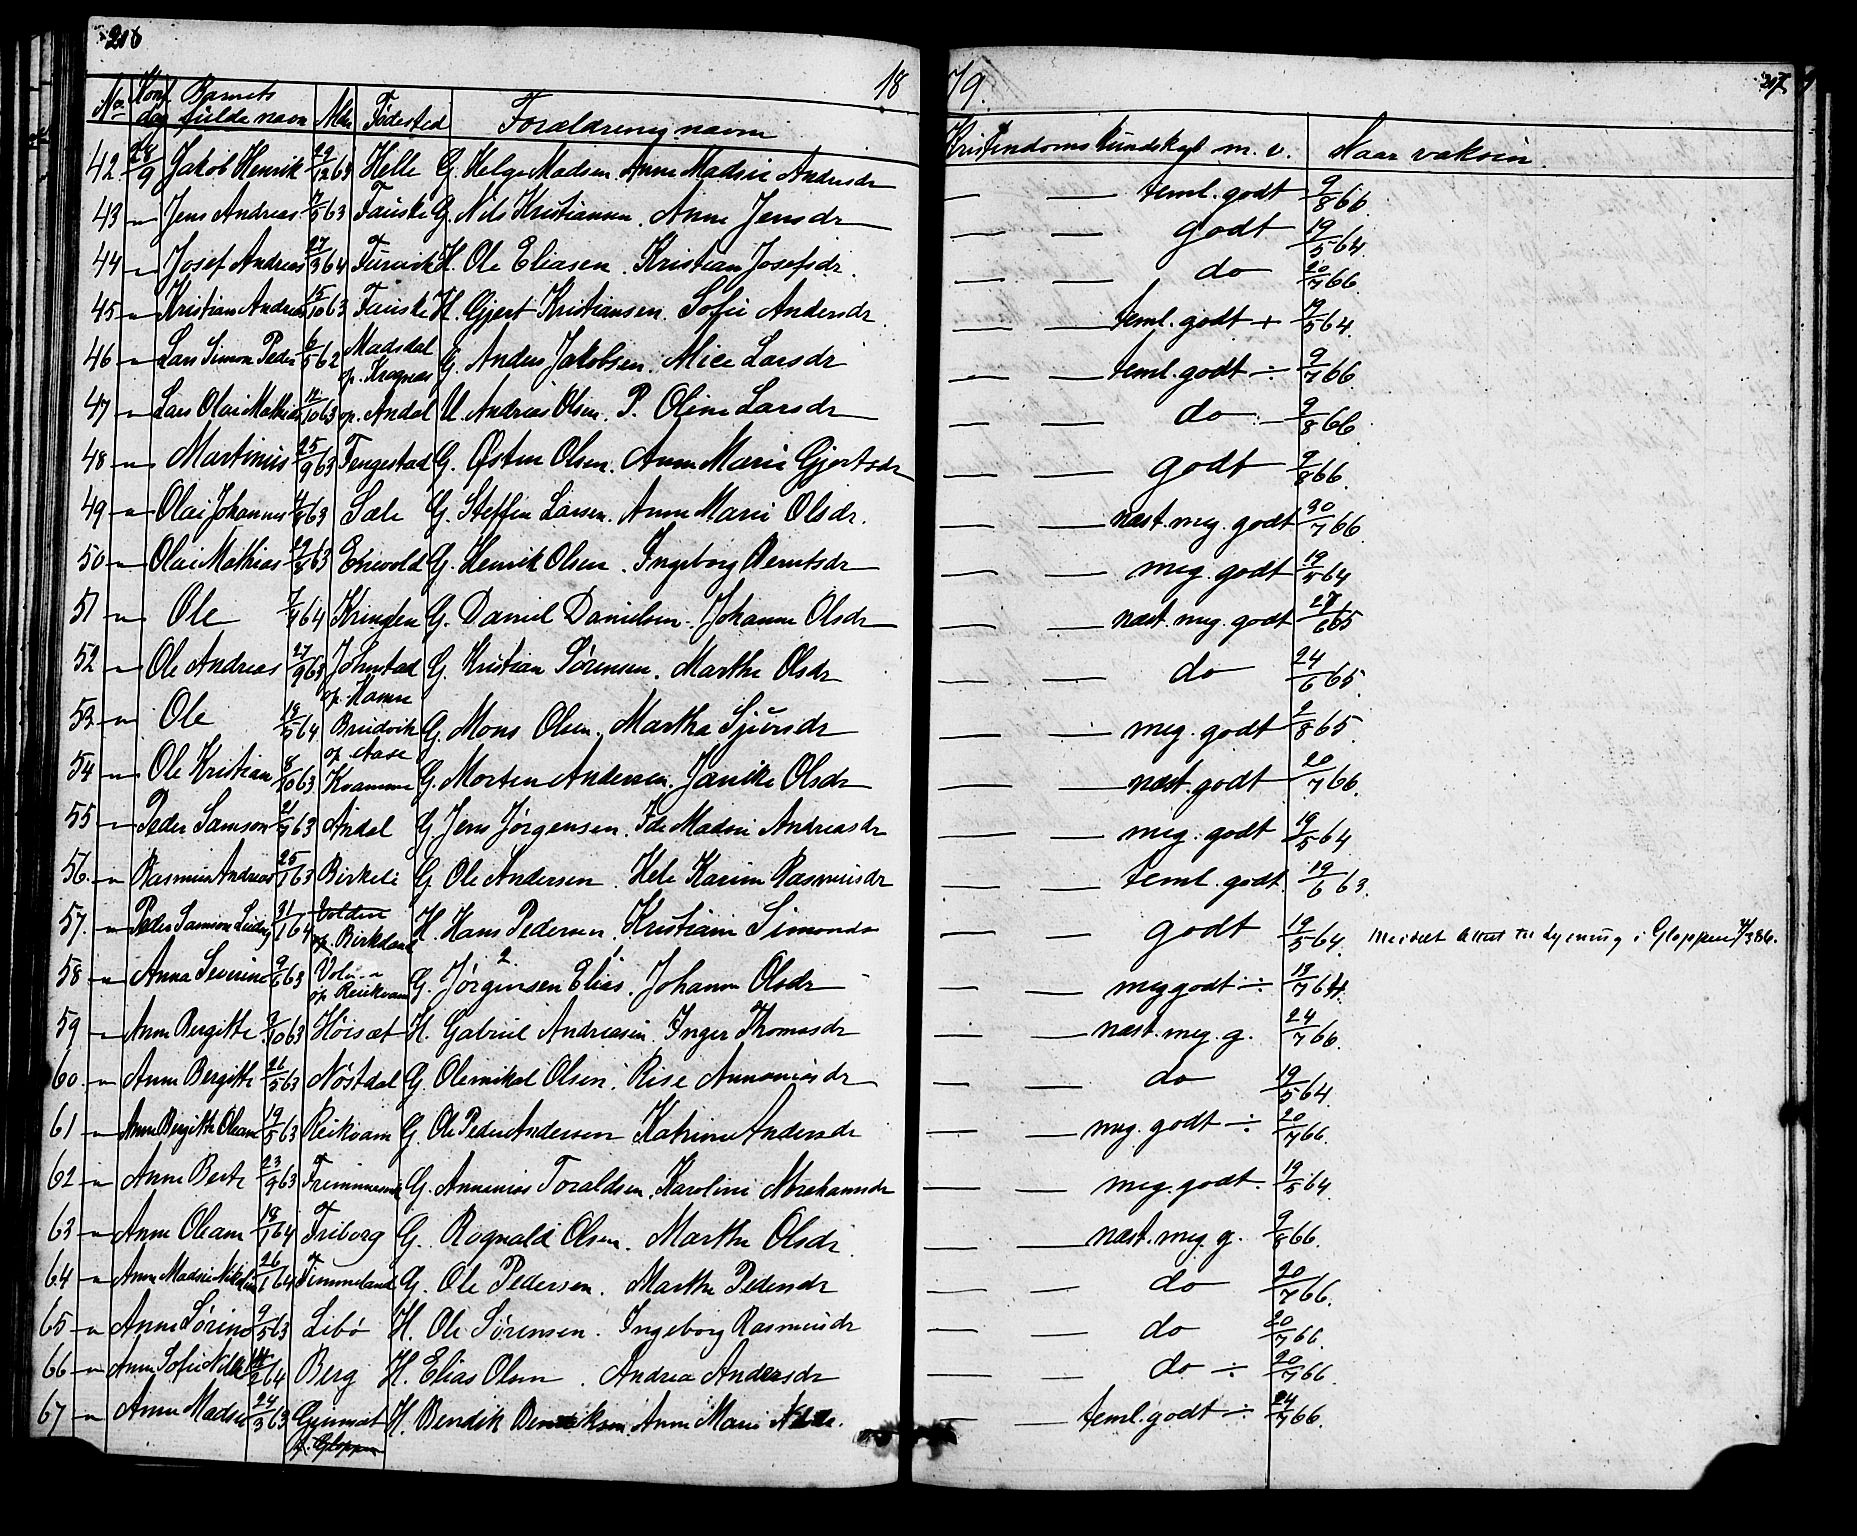 216
18 79. 217
No Konf dag Barnets fulde navn Alder Fødested Forældrenes navne Kristendomskundskab m. v. Naar vaksin.
42. 28/9 Jakob Henrik 29/12 63 Helle G. Helge Madsen. Anne Madsie Andersdr — — teml. godt 9/8 66.
43 " Jens Andreas 7/5 63 Fauske G. Nils Kristiansen. Anne Jensdr — — godt 19/5 64.
44 " Josef Andreas 27/3 64 Furuvik H. Ole Eliasen. Kristian Josefsdr. — — do 20/7 66.
45 " Kristian Andreas 15/10 63 Fauske H. Gjert Kristiansen. Sofie Andersdr. — — teml. godt + 19/5 64.
46 " Lars Simon Peder 6/5 62 Madsdal op. Kragnæs G. Anders Jakobsen. Alice Larsdr — — teml. godt ÷ 9/7 66
47 " Lars Olai Mathias 12/10 63 op. Andal U. Andreas Olsen. P. Oline Larsdr — — do 9/8 66
48 " Martinus 25/9 63 Tengestad G. Østen Olsen. Anne Marie Gjertsdr — — godt 9/8 66.
49 " Olai Johannes 63 Sæle G. Steffen Larsen. Anne Marie Olsdr. — — næst. meg. godt 20/7 66.
50 " Olai Mathias 63 G. Henrik Olsen. Ingeborg Berntsdr — — meg. godt 19/5 64
51 " Ole 64 Kringlen G. Daniel Danielsen. Johanne Olsdr — — næst. meg. godt 27/6 65
52 " Ole Andreas 27/9 63 Johnstad op. Hamre G. Kristian Sørensen. Marthe Olsdr — — do 24/6 65.
53 " Ole 64 Bruvik op. Aase G. Mons Olsen. Martha Sjursdr — — meg. godt 2/8 65.
54 " Ole Kristian 8/10 63 Kvamme G. Morten Andersen. Janike Olsdr — — næst. godt 20/7 66.
55 " Peder Samson 21/7 63 Andal G. Jens Jørgensen. Ide Madsie Andreasdr — — meg. godt 19/5 64
56. " Rasmus Andreas 25/1 63 Birkeli G. Ole Andersen. Hele Karine Rasmusdr — — teml. godt. 19/6 63.
57. " Peder Samson Ludvig 31/1 64 op. Birkeland H. Hans Pedersen. Kristiane Simonsdr — — godt 19/5 64. Meldt attest til lysning i Gloppen 3 86.
58 " Anna Severine 9/6 63 op Reikvam G. Jørgensen 2 Elias 1. Johanne Olsdr — — meg godt ÷ 13/7 64.
59 " Anne Bergitte 2/10 63 Høisæt H. Gabriel Andreasen. Inger Thomasdr — — næst. meg. g. 24/7 66.
60. " Anne Bergitte 26/5 63 Nøstdal G. Olemikal Olsen. Rise Annaniasdr — — do 19/5 64.
61 " Anne Bergitte Oleane 19/5 63 Reikvam G. Ole Peder Andersen Katrine Andersdr — — meg. godt ÷ 20/7 66.
62 " Anne Berte 23/9 63 Fremmersvik G. Annanias Toraldsen. Karoline Abrahamsdr — — meg. godt. 19/5 64.
63 " Anne Oleane 19/1 64 Friborg G. Ragnald Olsen. Marthe Olsdr. — — næst. meg. g. 9/8 66.
64 " Anne Madsie Nikoline 26/1 64 Timmeland G. Ole Pedersen. Marthe Pedersdr — — do 20/7 66.
65 " Anne Sørine 9/5 63 Libø H. Ole Sørensen. Ingeborg Rasmusdr — — do 20/7 66.
66 " Anne Sofie 64 Berg H. Elias Olsen. Andrea Andersdr — — do ÷ 20/7 66.
67 " Anne Madsie 24/3 63 f. Gloppen H. Bendik Bendiksen Anne Marie — — teml. godt ÷ 24/7 66.